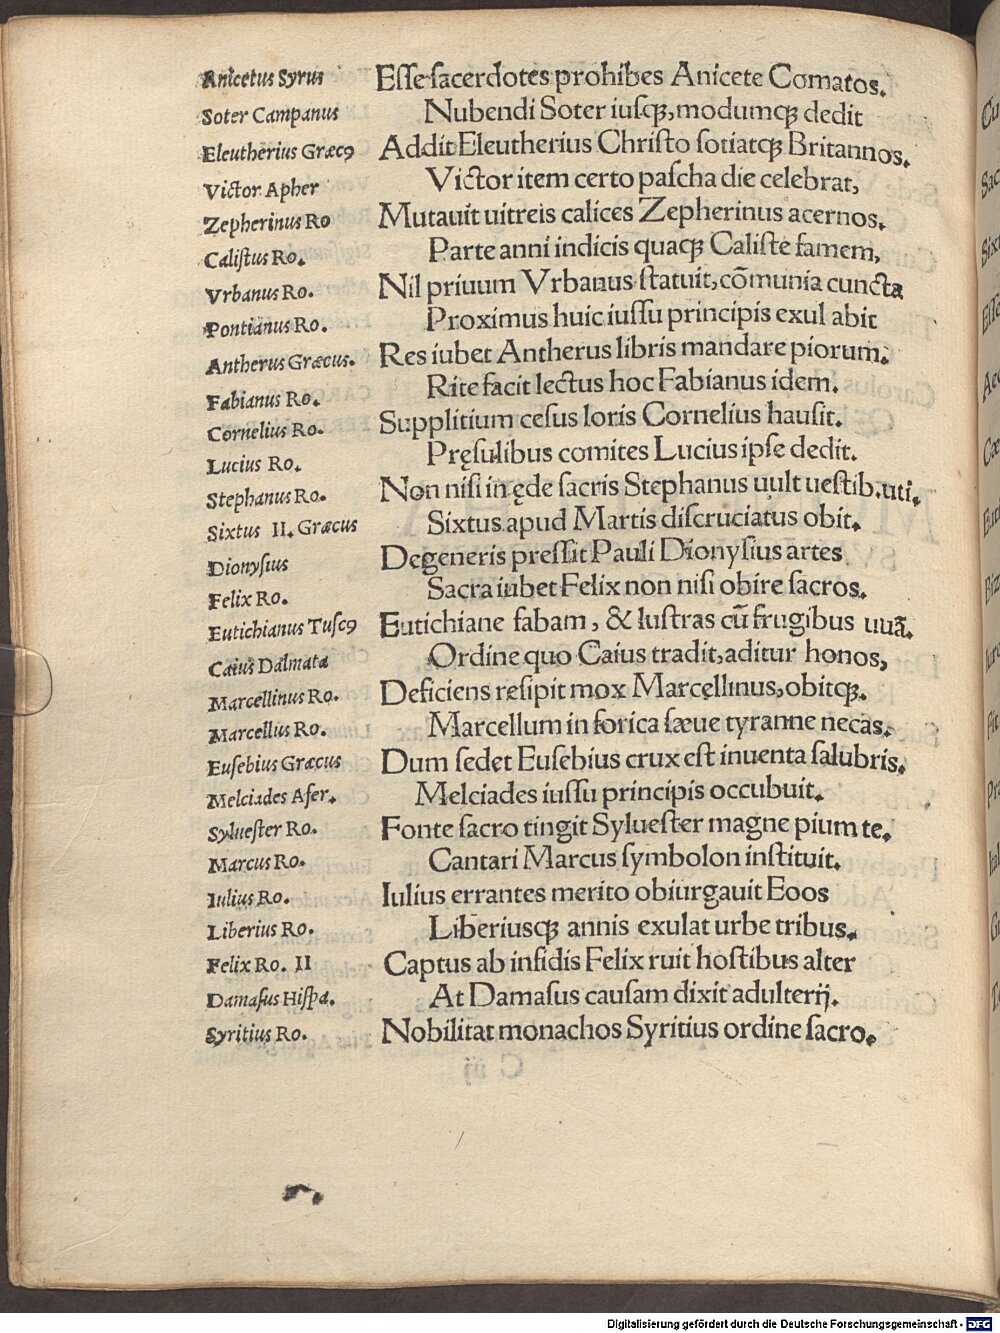 Anicetus Syrus Eſſe ſacerdotes prohibes Anicete Comatos.
Soter Campanus Nubendi Soter iuſqꝫ, modumqꝫ dedit
Eleutherius Græcꝰ Addit Eleutherius Chriſto ſotiatqꝫ Britannos.
Victor Apher Victor item certo paſcha die celebrat,
Zepherinus Ro Mutauit uitreis calices Zepherinus acernos.
Caliſtus Ro. Parte anni indicis quacqꝫ Caliſte famem,
Vrbanus Ro. Nil priuum Vrbanus ſtatuit, cōmunia cuncta
Pontianus Ro. Proximus huic iuſſu principis exul abit
Antherus Græcus. Res iubet Antherus libris mandare piorum.
Fabianus Ro. Rite facit lectus hoc Fabianus idem.
Cornelius Ro. Supplitium ceſus loris Cornelius hauſit.
Lucius Ro. Pręſulibus comites Lucius ipſe dedit.
Stephanus Ro. Non niſi in ęde ſacris Stephanus uult ueſtib. uti.
Sixtus II. Græcus Sixtus apud Martis diſcruciatus obit.
Dionyſius Degeneris preſſit Pauli Dionyſius artes
Felix Ro. Sacra iubet Felix non niſi obire ſacros.
Eutichianus Tuſcꝰ Eutichiane fabam, & luſtras cū frugibus uuā.
Caius Dalmata Ordine quo Caius tradit, aditur honos,
Marcellinus Ro. Deficiens reſipit mox Marcęllinus, obitqꝫ.
Marcellus Ro. Marcellum in forica ſæue tyranne necas.
Euſebius Græcus Dum ſedet Euſebius crux eſt inuenta ſalubris.
Melciades Afer. Melciades iuſſu principis occubuit.
Sylueſter Ro. Fonte ſacro tingit Sylueſter magne pium te.
Marcus Ro. Cantari Marcus ſymbolon inſtituit.
Iulius Ro. Iulius errantes merito obiurgauit Eoos
Liberius Ro. Liberiusqꝫ annis exulat urbe tribus.
Felix Ro. II Captus ab infidis Felix ruit hoſtibus alter
Damaſus Hiſpa. At Damaſus cauſam dixit adulterij.
Syritius Ro. Nobilitat monachos Syritius ordine ſacro.
Digitalisierung gefördert durch die Deutsche Forschungsgemeinschaft - DFG